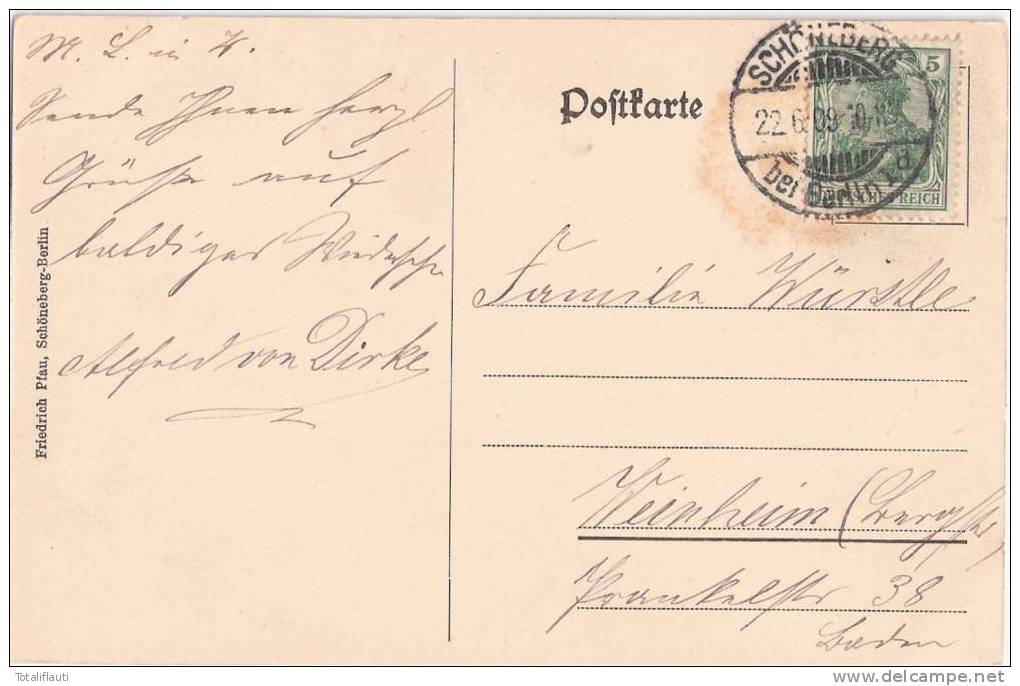 M. L. in K.
Sende Ihnen herzl
Grüße auf
baldiges Wiedersehn
Alfred von Dirke
Friedrich Pfau, Schöneberg-Berlin
Postkarte
SCHÖNEBERG
22.6.09
bei Berlin
5
DEUTSCHES REICH
Familie Würstle
Weinheim (Bergstr.)
38
Baden
Totaliflauti
delcampe.net